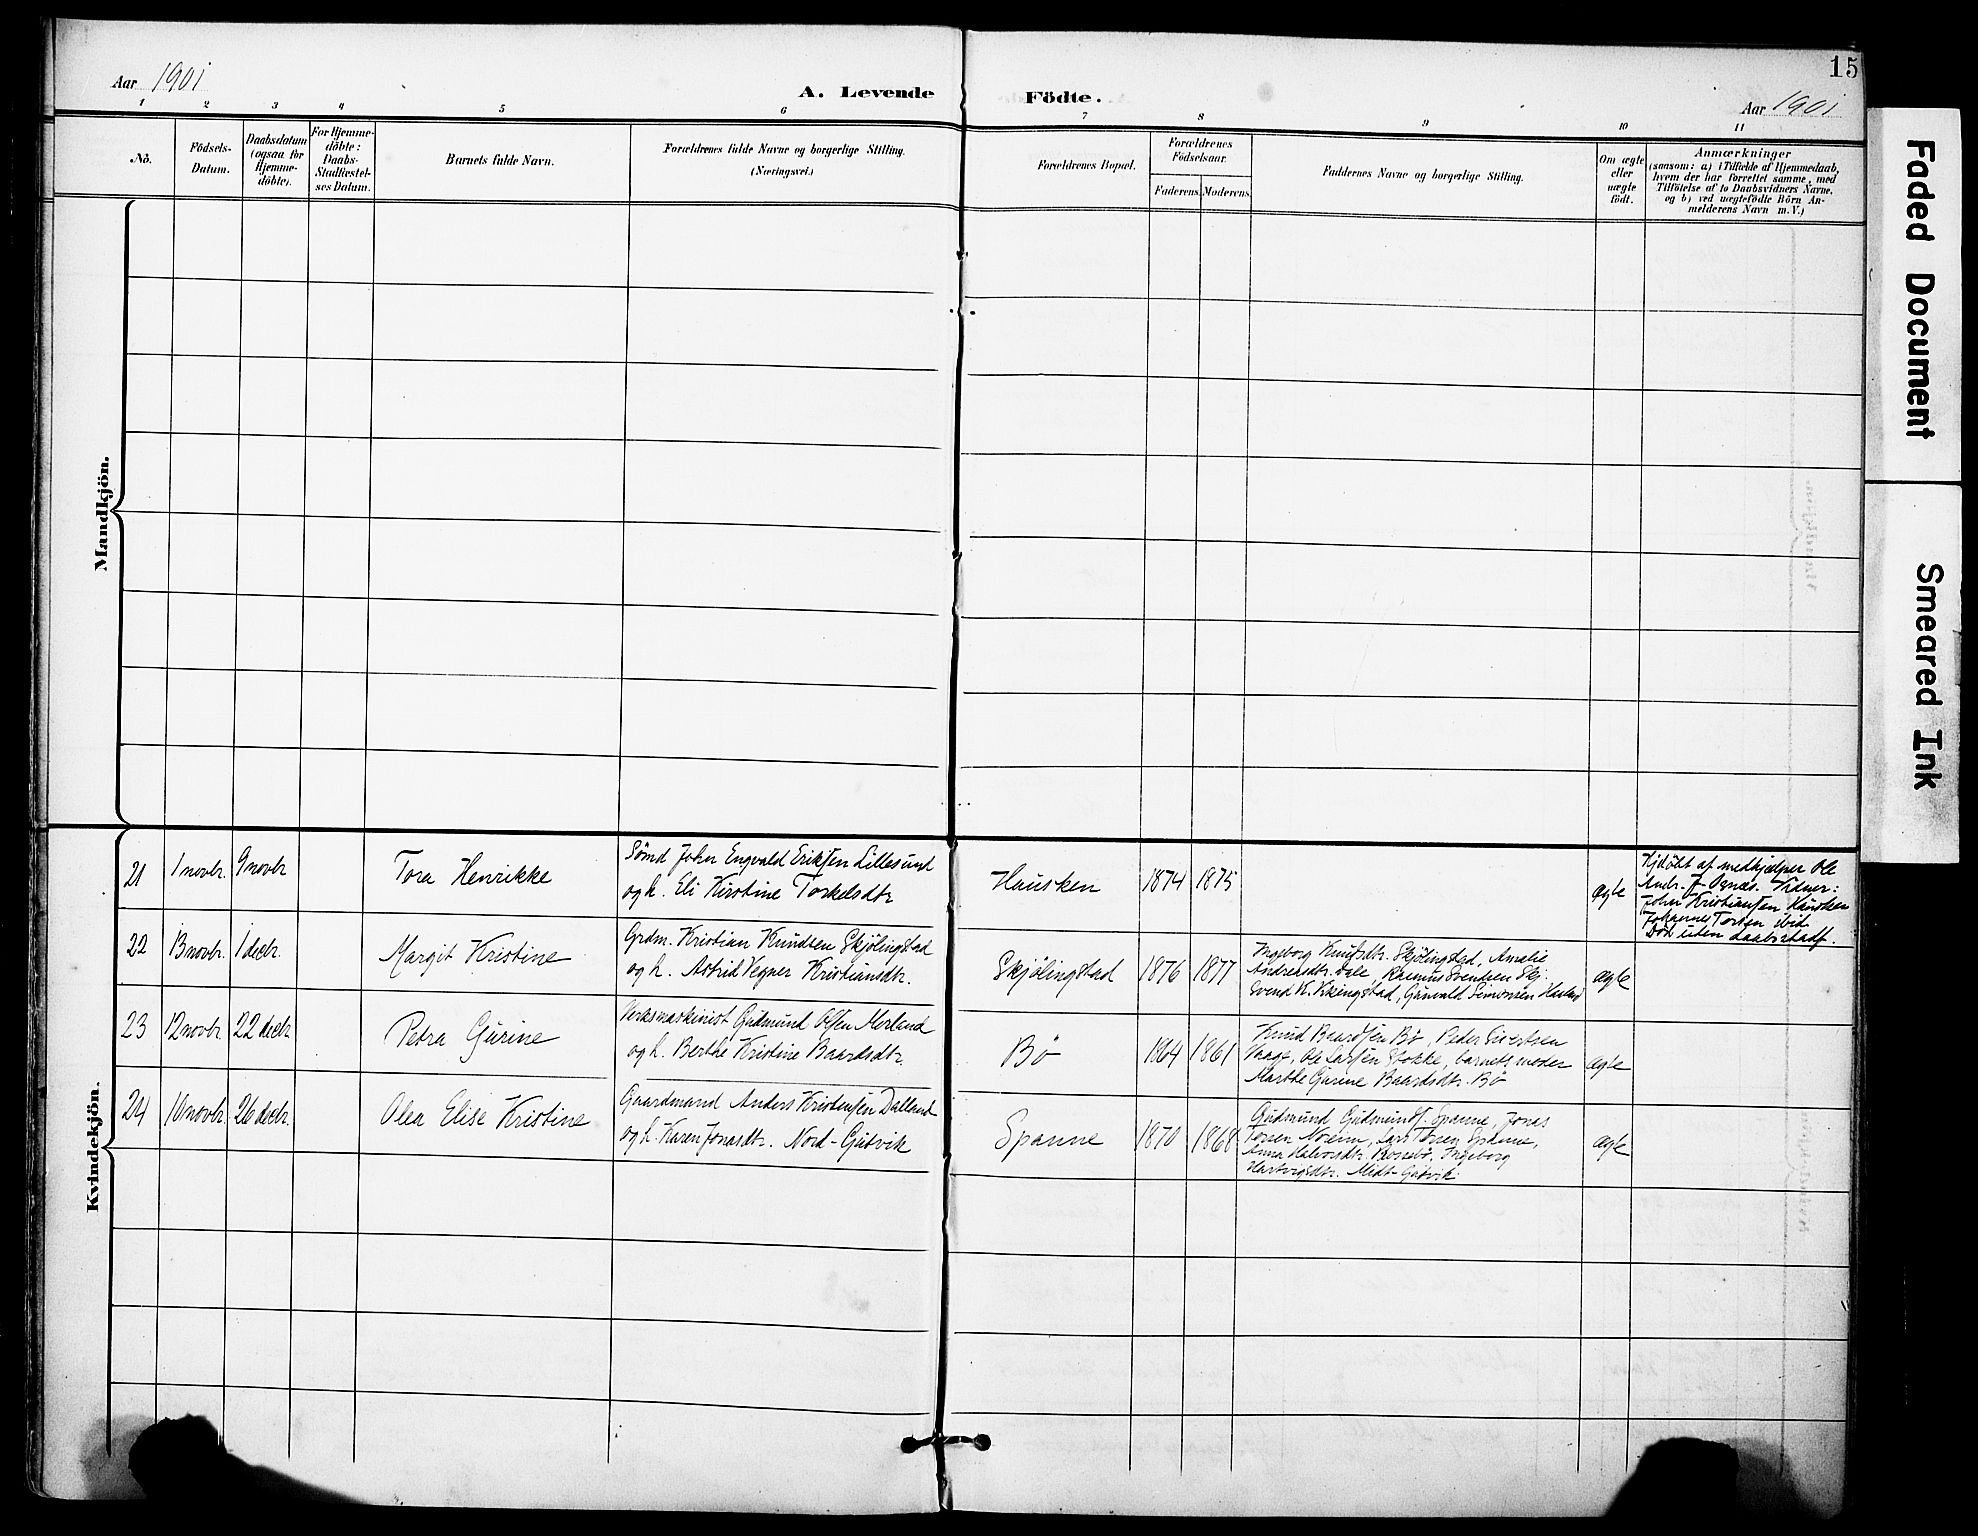 15
Aar 1901
A. Levende Födte.
Aar 1901
1 2 3 4 5 6 7 8 9 10 11
Nö.
Födsels-
Datum.
Daabsdatum
(ogsaa for
Hjemme-
döbte).
For Hjemme-
döbte:
Daabs-
Stadfæstel-
ses Datum.
Barnets fulde Navn.
Forældrenes fulde Navne og borgerlige Stilling.
(Næringsvei.)
Forældrenes Bopæl.
Forældrenes
Födselsaar.
Faderens. Moderens.
Faddernes Navne og borgerlige Stilling.
Om ægte
eller
uægte
födt.
Anmærkninger
(saasom: a) i Tilfælde af Hjemmedaab,
hvem der har forrettet samme, med
Tilföielse af to Daabsvidners Navne,
og b) ved uægtefödte Börn An-
melderens Navn m. V.)
Mandkjön.
Kvindekjön.
21 1 novbr. 9 novbr
Tora Henrikke
Sømd John Engvald Eriksen Lillesund
og h. Eli Kirstine Torkelsdtr
Hausken 1874 1875
ægte
Hjdøbt af medhjælper Ole
Andr. Vidner:
John Kristiansen Hausken
Johannes Torsen ibid
Død uden daabsstadf.
22 13 novbr. 1 decbr.
Margit Kristine
Grdm. Kristian Knudsen Skjølingstad
og h. Astrid Vegner Kristiansdtr.
Skjølingstad 1876 1877
Ingeborg Knutsdtr. Skjølingstad, Amalie
Andreasdtr. Dale, Rasmus Svendsen Skj.
Svend K. Gunvald Simonsen
ægte
23 12 novbr. 22 decbr
Petra Gurine
Verksmaskinist Gudmund Olsen Morland
og h. Berthe Kristine Baardsdtr.
Bø 1864 1861
Knud Baardsen Bø, Peder Sivertsen
Vaage, Ole Larsen Stokke, barnets moder
Marthe Gurine Baardsdtr. Bø
ægte
24 10 novbr. 26 decbr.
Olea Elise Kristine
Gaardmand Anders Kristensen Dalland
og h. Karen Jonasdtr. Nord-Gudvik
Spanne 1870 1868
Gudmund Gudmunds. Spanne, Jonas
Torsen Noreim, Lars Torsen Spanne,
Anna Halvorsdtr. Rossebø, Ingeborg
Hartvigsdtr. Midt-Gudvik
ægte
Faded Document
Smeared Ink